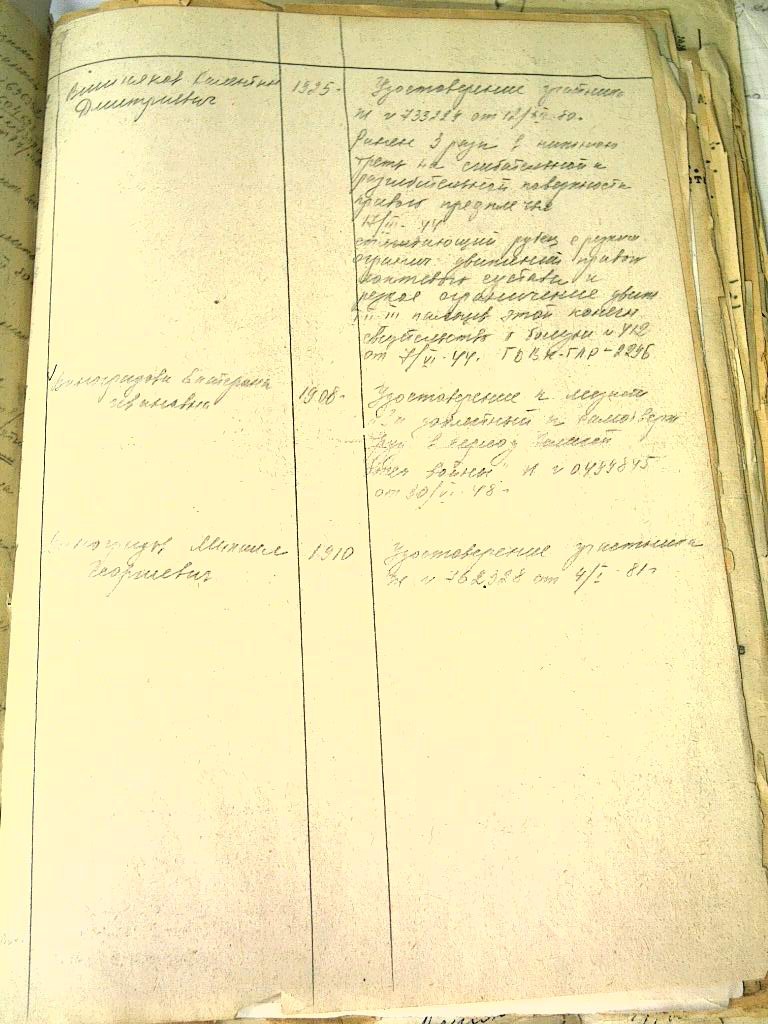 Вишняков Валентин
Дмитриевич
1925г.
Удостоверение участника
от 12/XII-80г.
Ранен 3 раза в нижнюю
треть на сгибательной и
разгибательной поверхности
правого предплечья
17/III-44
рубец с резким
огранич. движений правого
локтевого сустава и
резкое ограничение движ.
II-III пальцев этой конечн.
свидетельство о болезни №412
от 7/VI-44. ГЛР-2296
Виноградова Екатерина
Ивановна
1908г.
Удостоверение к медали
"За доблестный и самоотверж
труд в период Великой
войны"
от 30/VI-48г.
Виноградов Михаил
Георгиевич
1910
Удостоверение участника
№ 762328 от 4/I-81г.